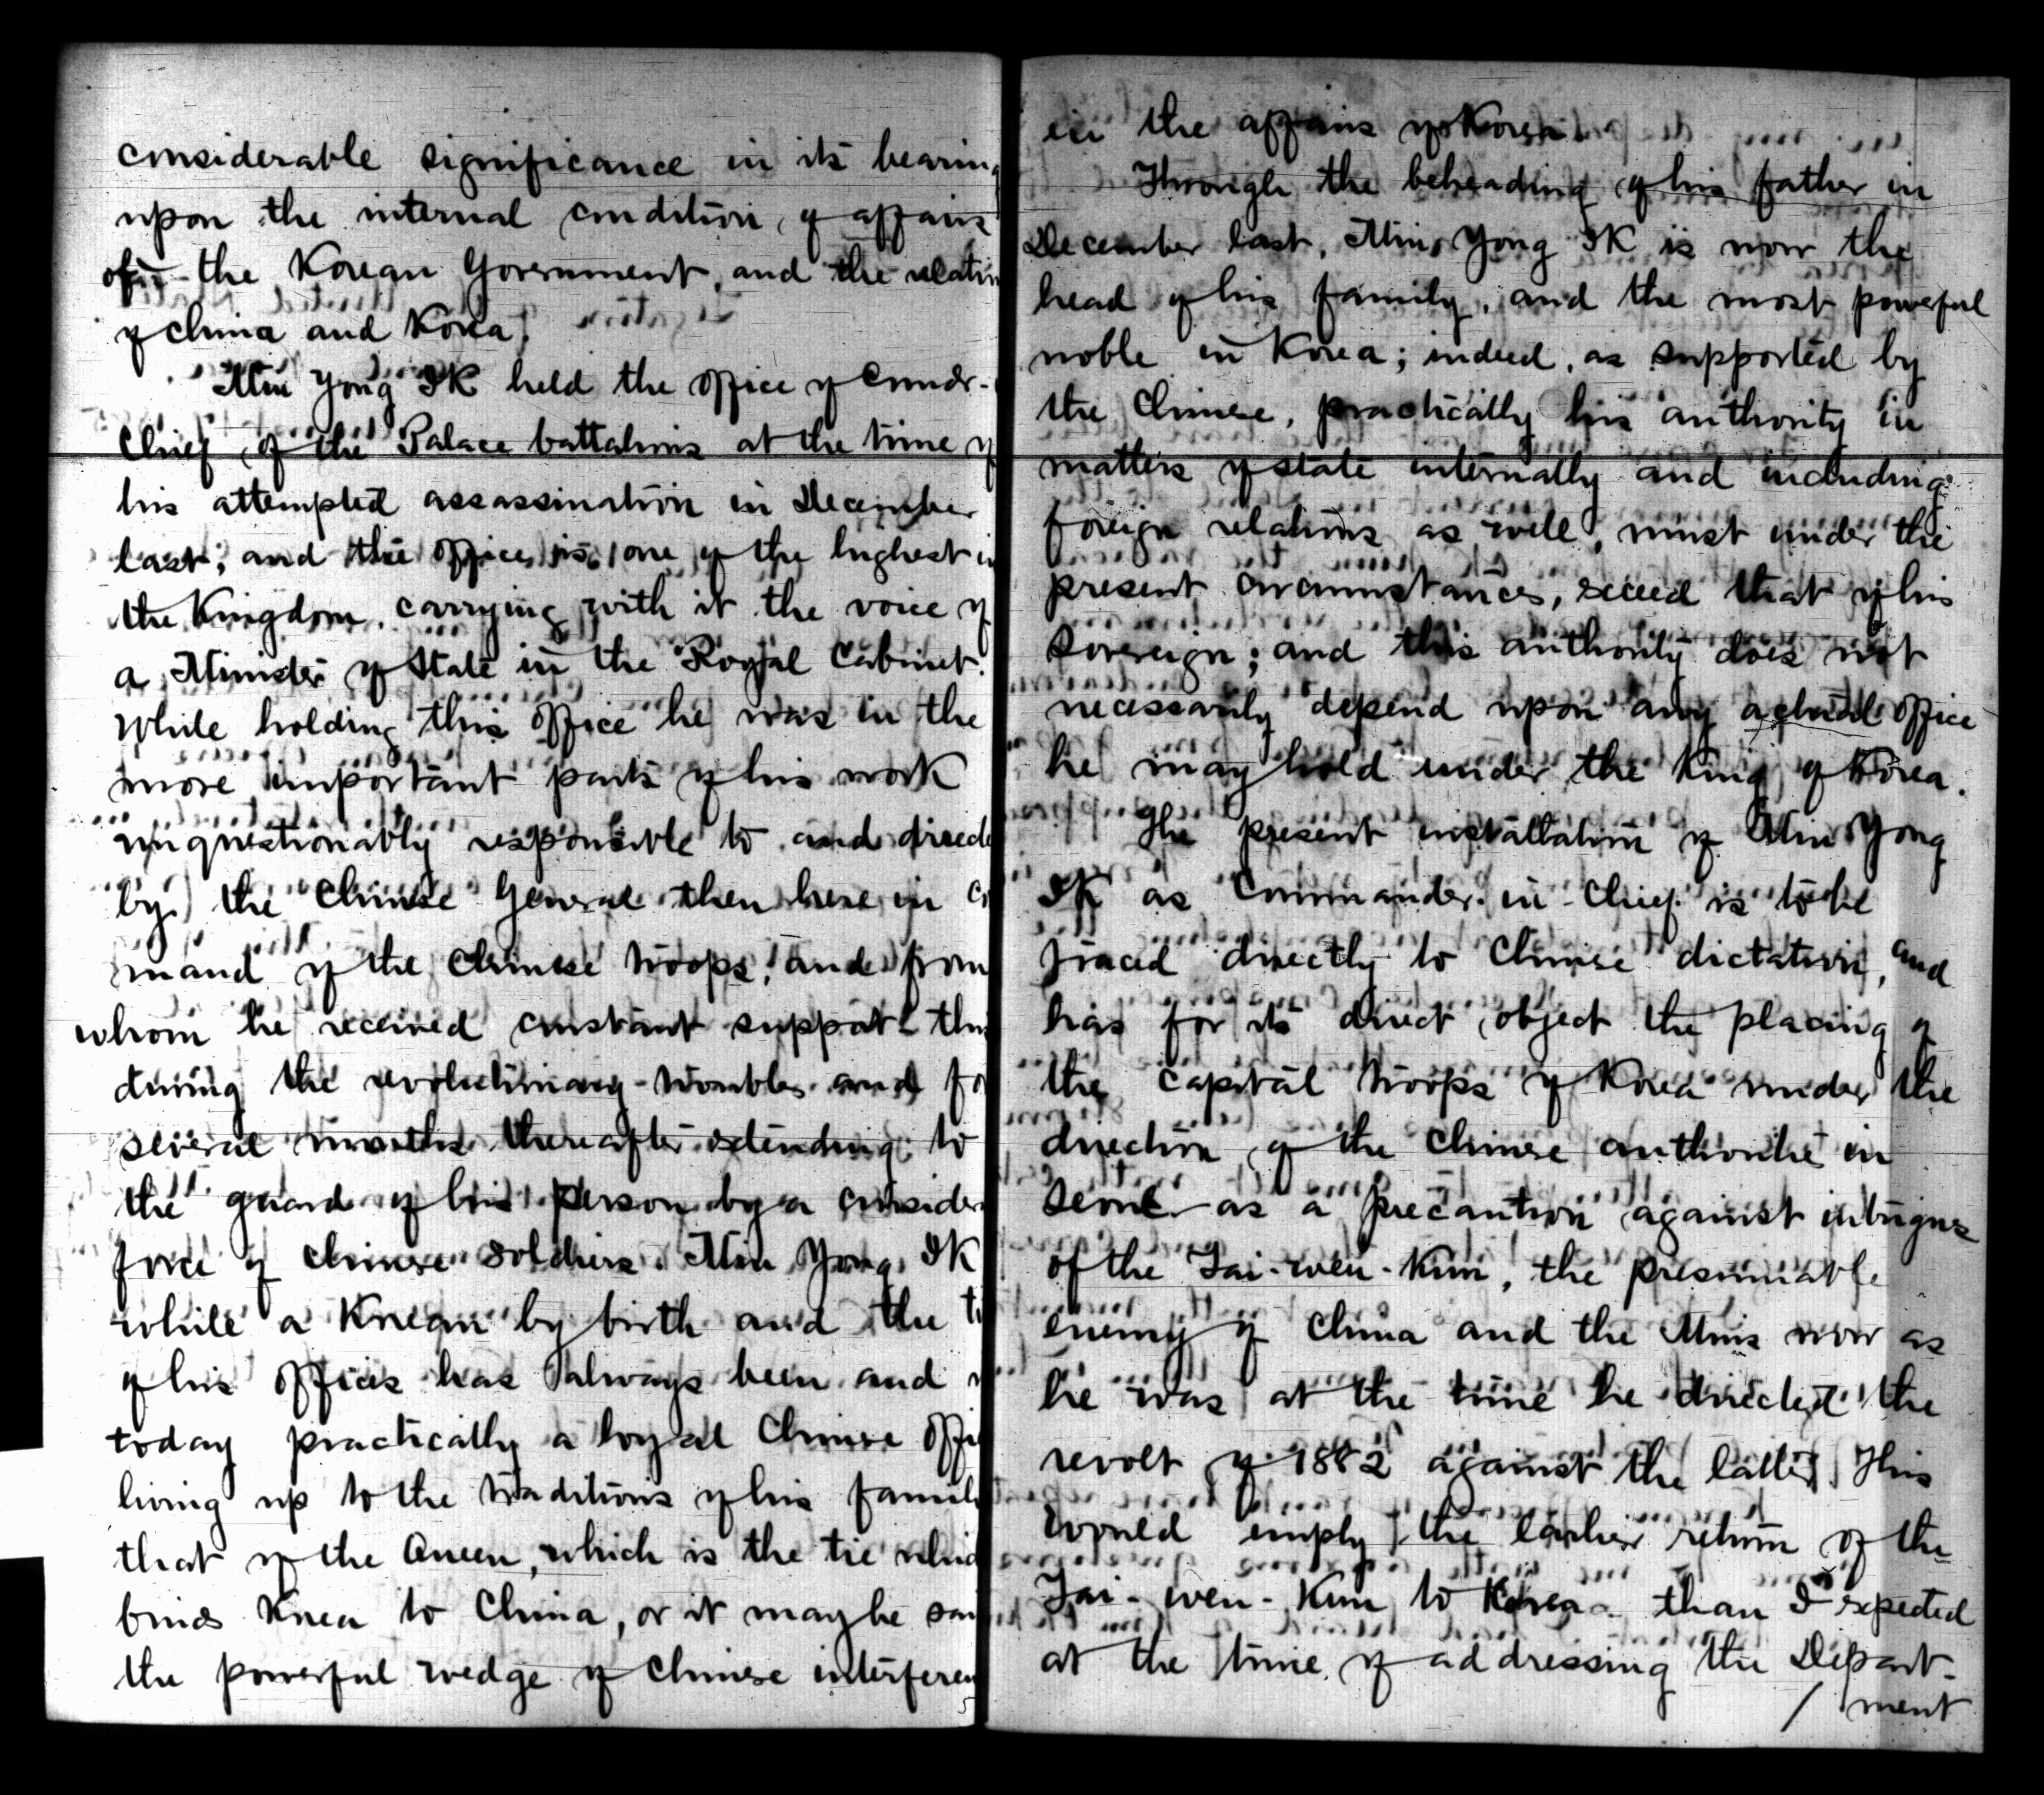 considerable significance in its bearing
upon the internal condition of affairs
of the Korean Government, and the relation
of China and Korea.
Min Yong Ik held the office of Comdr.-
Chief of the Palace battalions at the time of
his attempted assassination in December
last; and this office is one of the highest in
the Kingdom, carrying with it the voice of
a Minister of State in the Royal Cabinet.
While holding this office he was in the
more important parts of his work
unquestionably responsible to and directed
by the Chinese General then here in com
mand of the Chinese troops, and from
whom he received constant support
during the revolutionary troubles and for
several months thereafter extending to
the guard of his person by a consider
force of Chinese soldiers. Min Yong Ik
while a Korean by birth and the
of his offices has always been and
today practically a loyal Chinese offi
living up to the traditions of his family
that of the Queen, which is the tie which
binds Korea to China, or it may be said
the powerful wedge of Chinese interferen
in the affairs of Korea.
Through the beheading of his father in
December last, Min Yong Ik is now the
head of his family, and the most powerful
noble in Korea; indeed, as supported by
the Chinese, practically his authority in
matters of state internally and including
foreign relations as well, must under the
present circumstances, exceed that of his
sovereign; and this authority does not
necessarily depend upon any actual office
he may hold under the King of Korea.
The present installation of Min Yong
Ik as Commander-in-Chief is to be
traced directly to Chinese dictation, and
has for its direct object the placing of
the capital troops of Korea under the
direction of the Chinese authorities in
Seoul as a precaution against intrigues
of the Tai-wen-Kun, the presumable
enemy of China and the Mins now as
he was at the time he directed the
revolt of 1882 against the latter. This
would imply the earlier return of the
Tai-wen-Kun to Korea than I expected
at the time of addressing the Depart-
/ ment